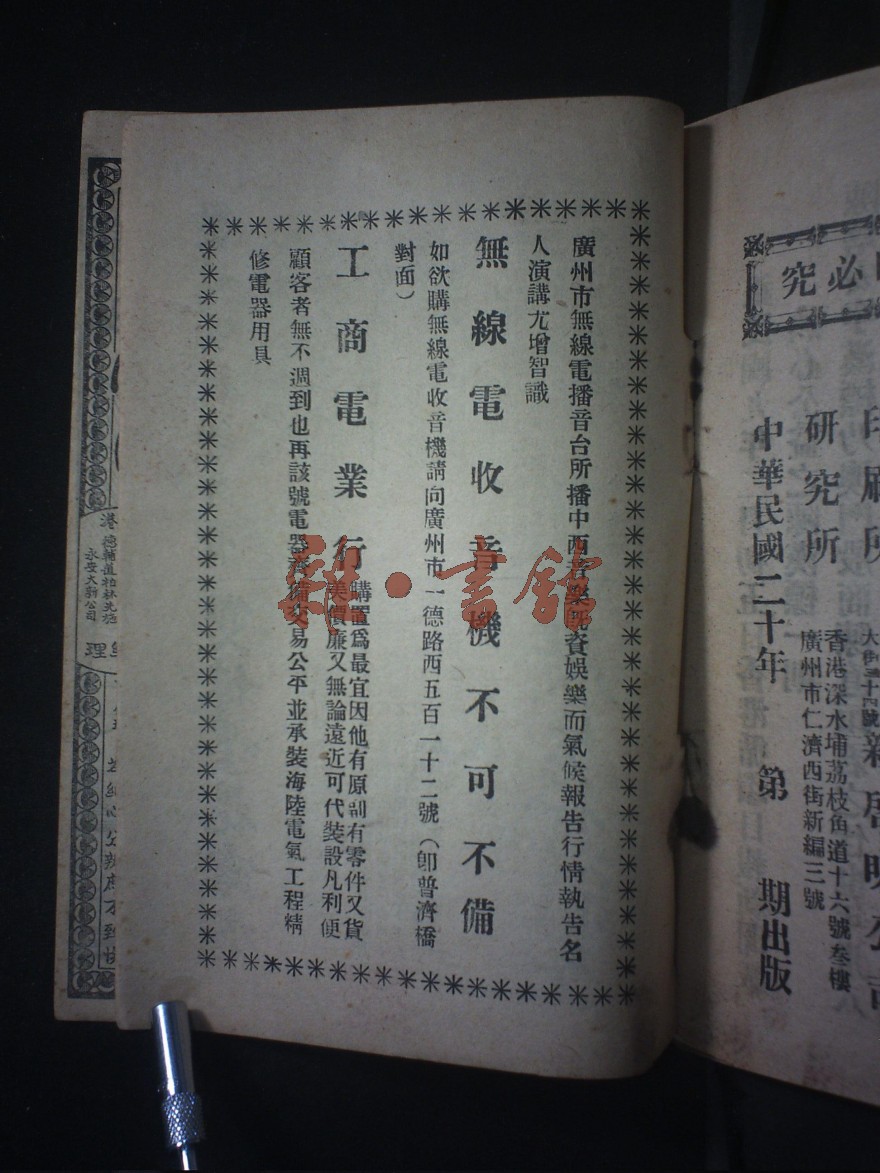 必究
印刷所
研究所
香港深水埔荔枝角道十六號叁樓
廣州市仁濟西街新編三號
中華民國二十年 第 期出版
廣州市無線電播音台所播中西音樂既資娛樂而氣候報告行情執告名
人演講尤增智識
無線電收音機不可不備
如欲購無線電收音機請向廣州市一德路西五百一十二號（卽普濟橋
對面）
工商電業行
購置爲最宜因他有原副有零件又貨
美價廉又無論遠近可代裝設凡利便
顧客者無不週到也再該號電器齊備交易公平並承裝海陸電氣工程精
修電器用具
港
德輔道
永安大新公司
理
籍·書館